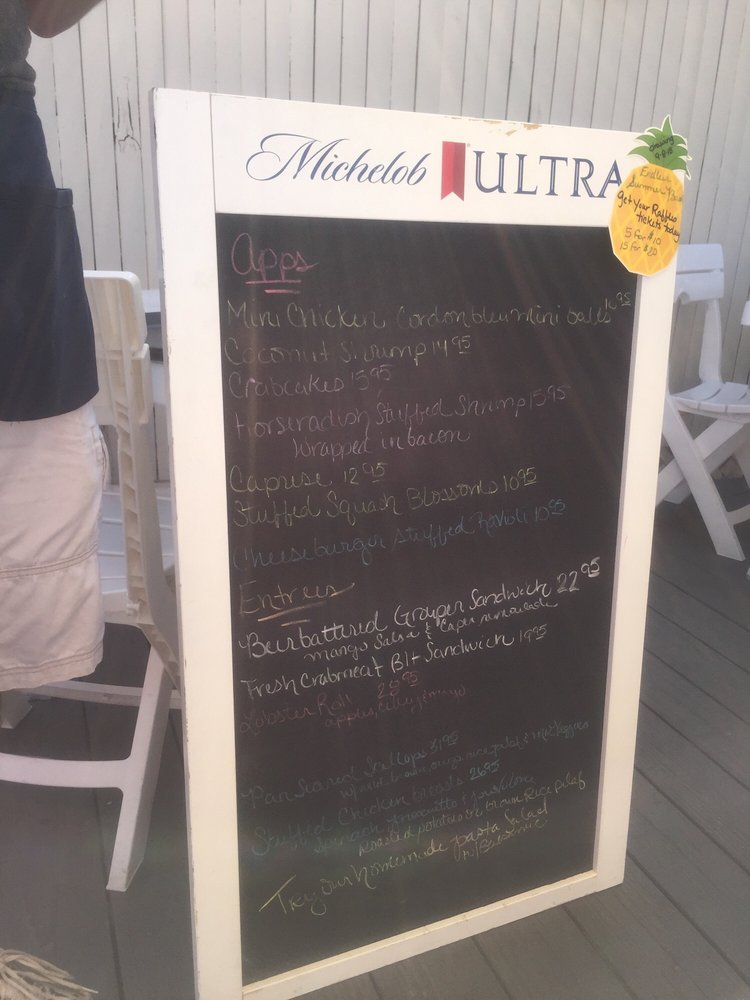 Michelob ULTRA
drawing
9-8-18
Endless
Summer
get your Raffle
tickets today
5 for $10
15 for $20
Apps
Mini Chicken Cordonbleu mini balls 10 95
Coconut Shrimp 14 95
Crabcakes 15 95
Horseradish Stuffed Shrimp 15 95
Wrapped in bacon
Caprise 12 95
Stuffed Squash Blossoms 10 95
Cheeseburger Stuffed Ravioli 10 95
Entrees
Beerbattered Grouper Sandwich 22 95
mango Salsa & Caper remoulade
Fresh Crabmeat Blt Sandwich 19 95
Lobster Roll 26 95
apples, celery & mayo
Pan Seared Scallops 31 95
rice pilaf &
Stuffed Chicken breast 26 95
Spinach Proscuitto &
Roasted potatoes or brown Rice Pilaf
Try our homemade pasta Salad